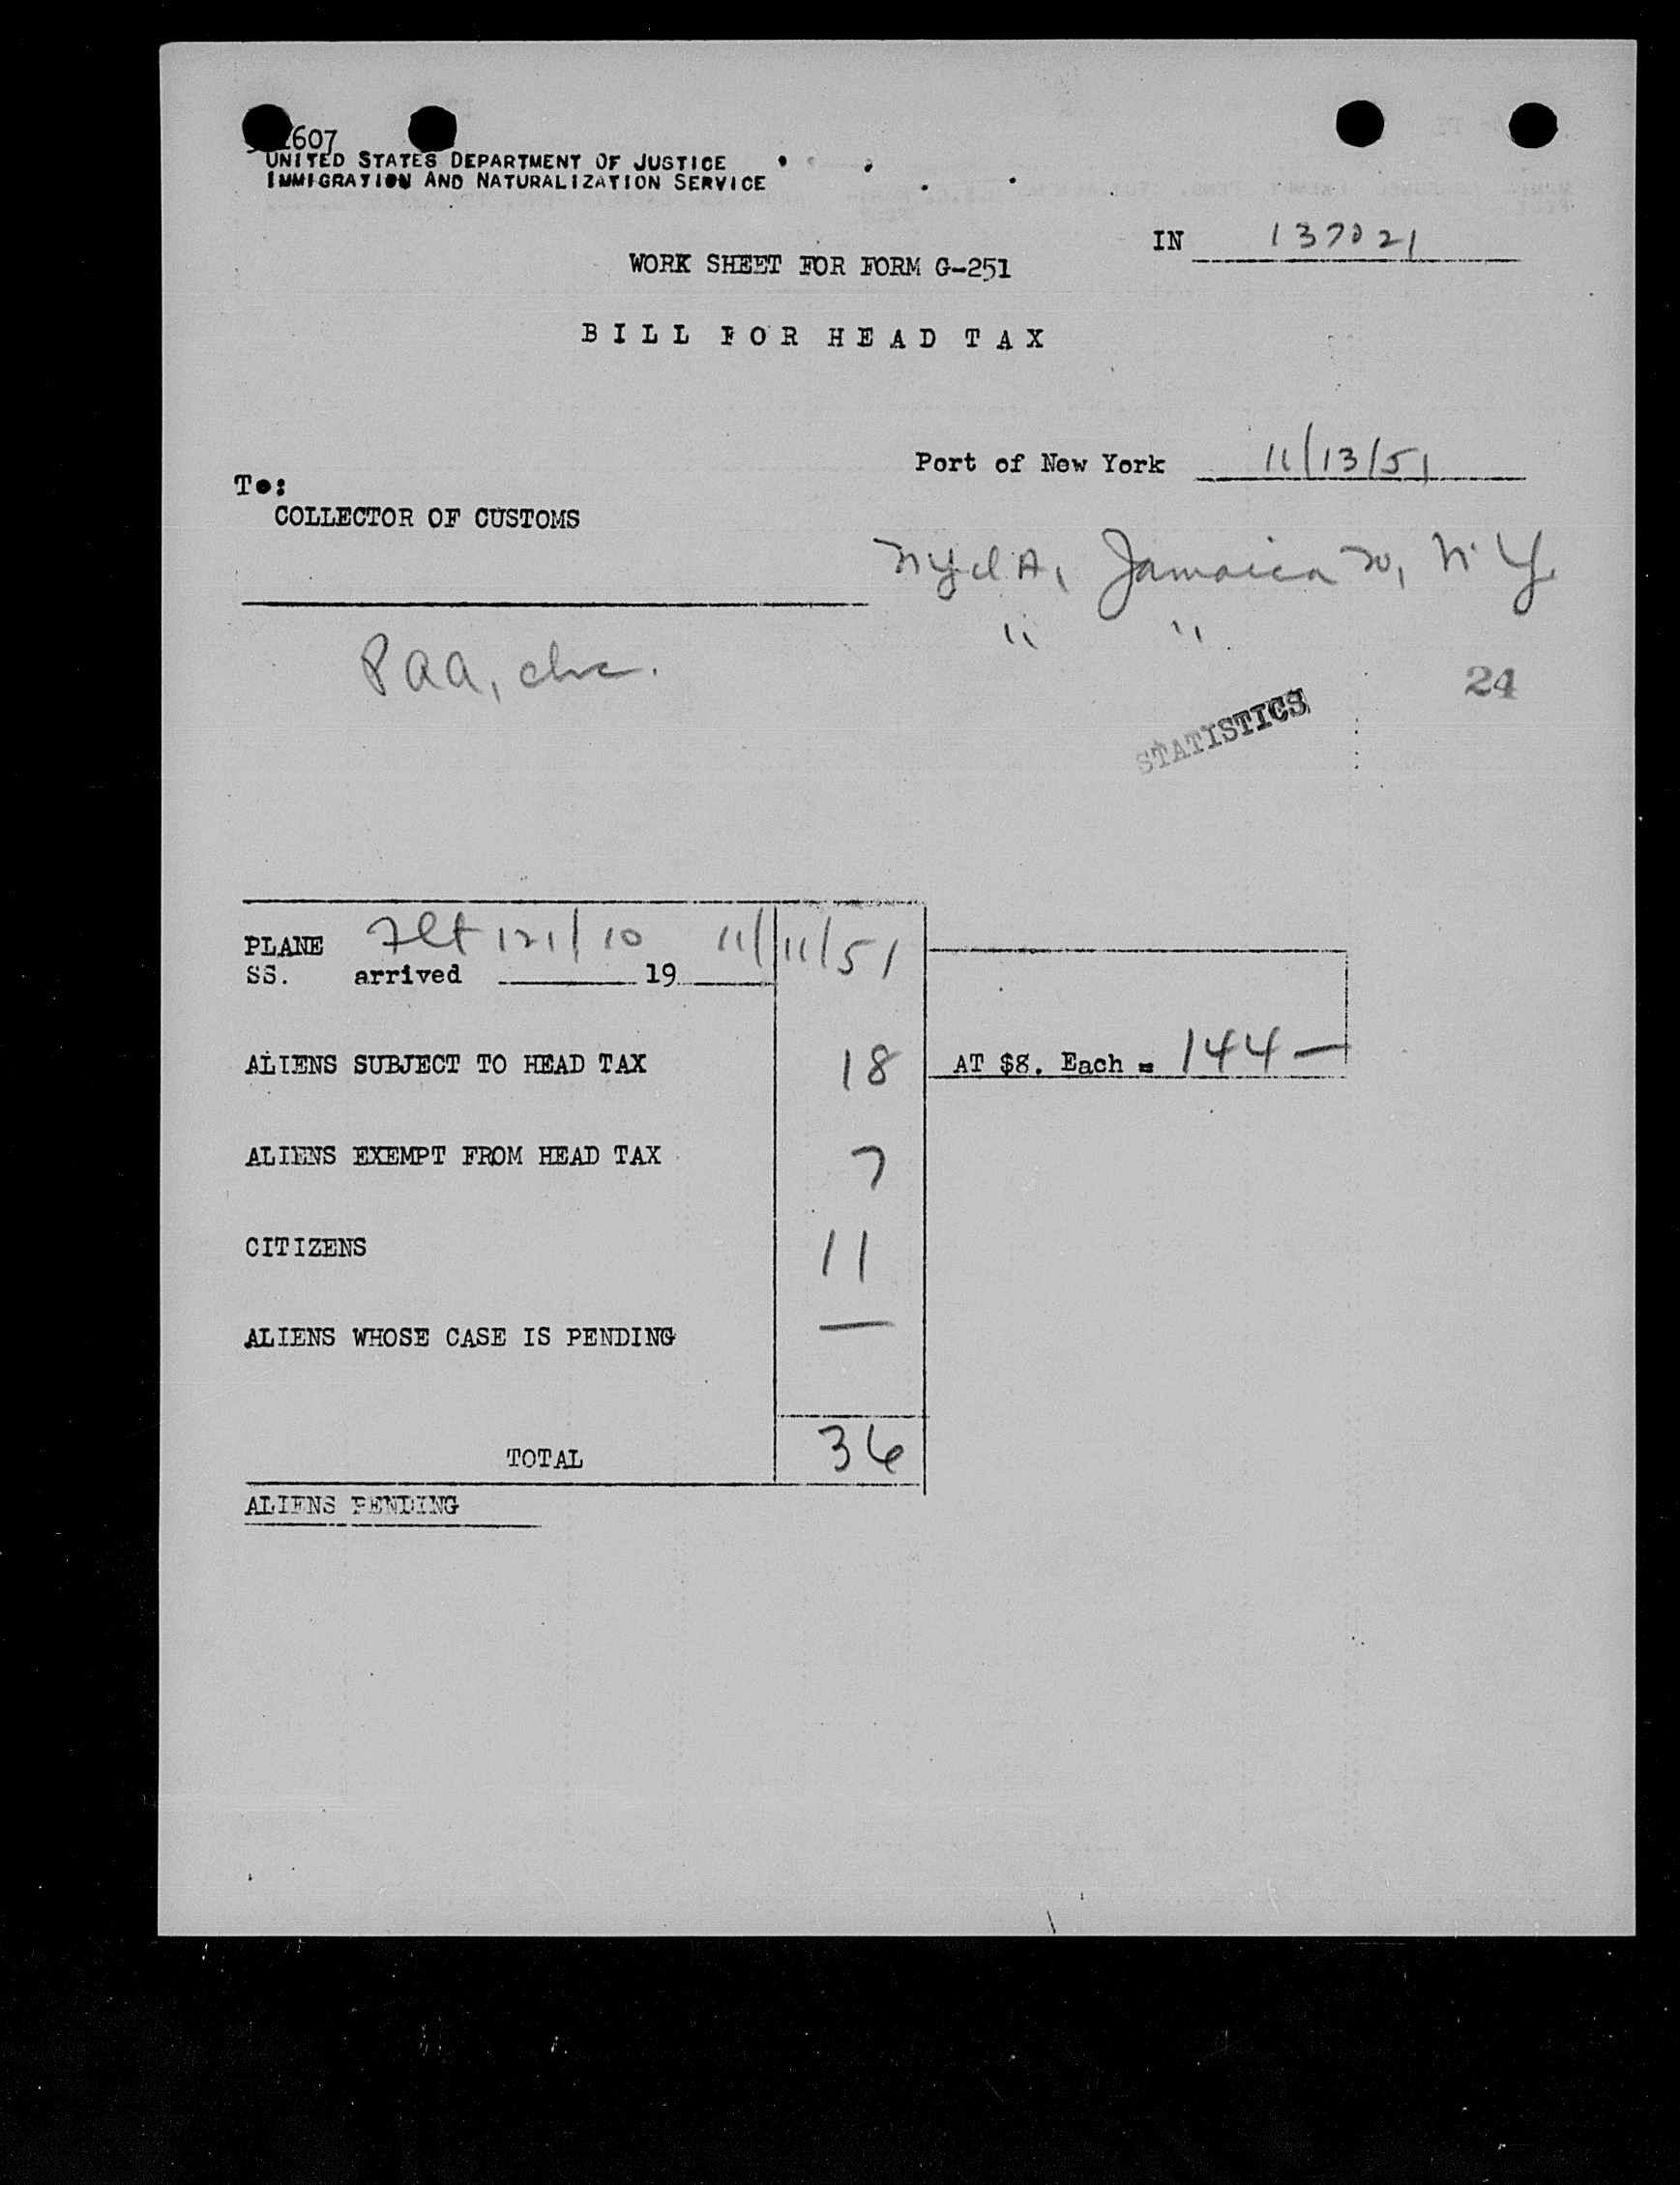 607
UNITED STATES DEPARTMENT OF JUSTICE
IMMIGRATION AND NATURALIZATION SERVICE
IN 137021
WORK SHEET FOR FORM G-251
BILL FOR HEAD TAX
Port of New York 11/13/51
To:
COLLECTOR OF CUSTOMS
Jamaica N.Y.
" "
PAA,
24
STATISTICS
PLANE Flt 121/10 11/11/51
SS. arrived 19
ALIENS SUBJECT TO HEAD TAX 18 AT $8. Each = 144 —
ALIENS EXEMPT FROM HEAD TAX 7
CITIZENS 11
ALIENS WHOSE CASE IS PENDING —
TOTAL 36
ALIENS PENDING